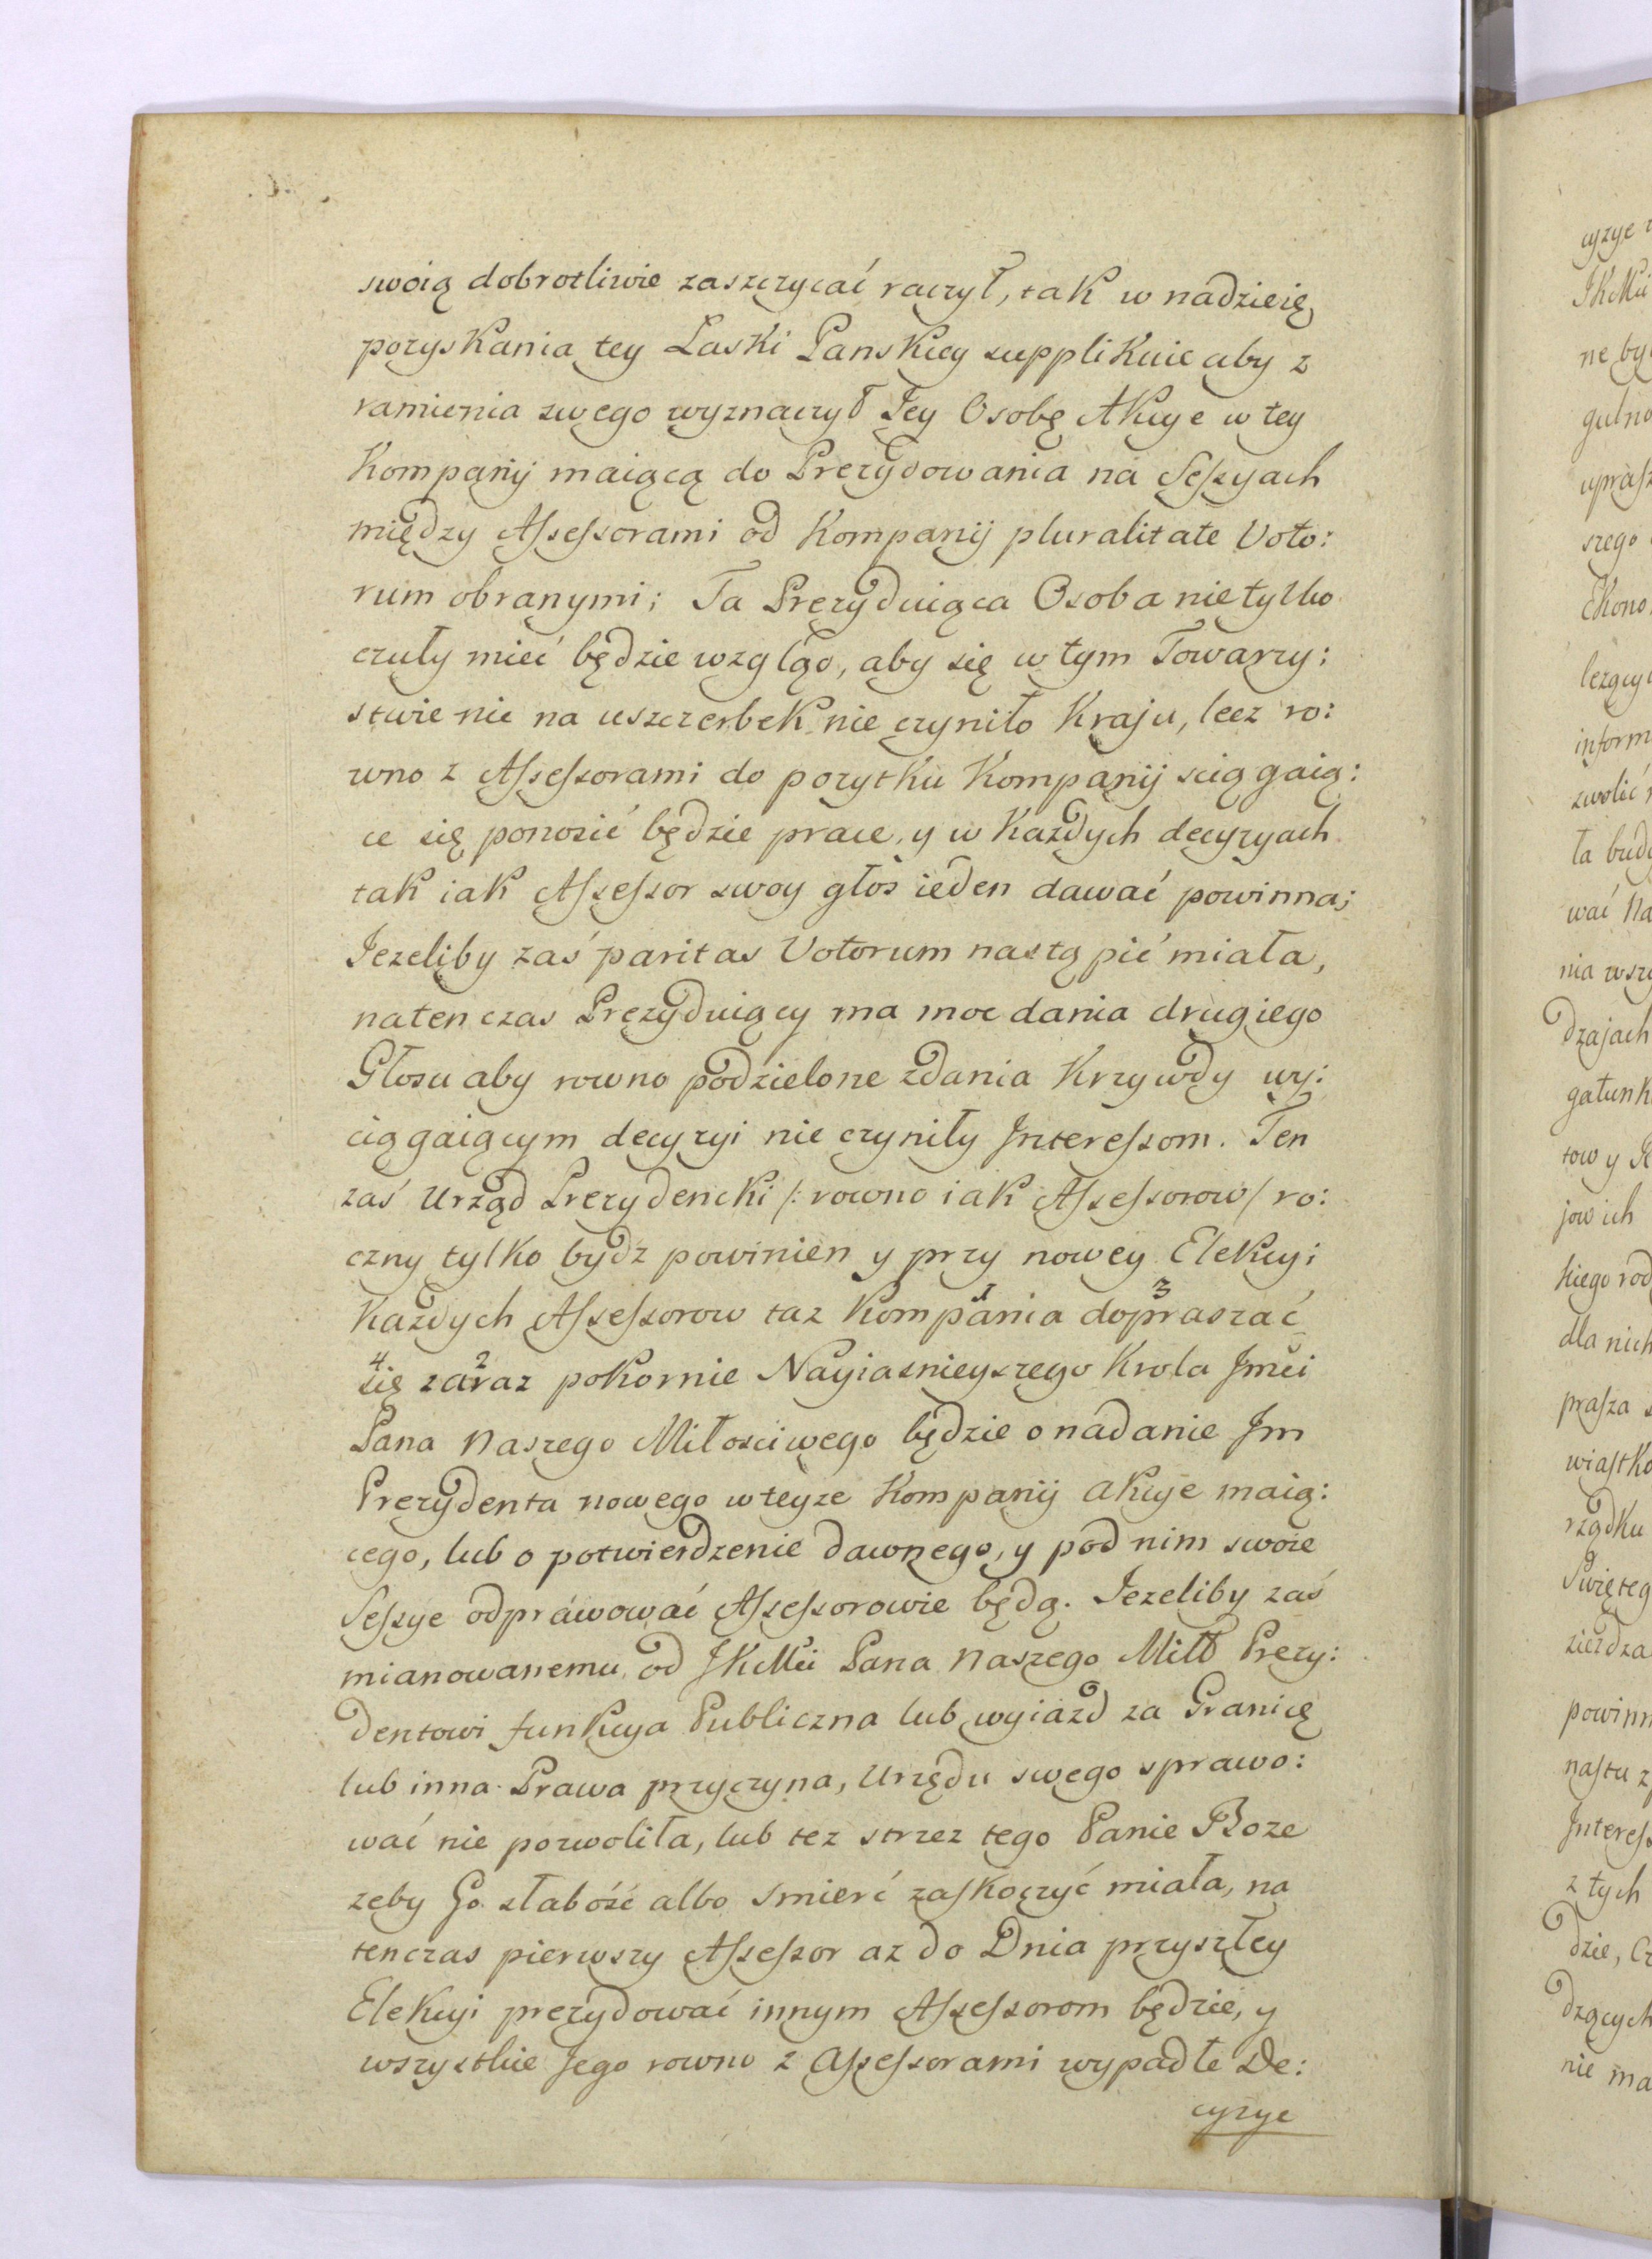 swoią dobrotliwie zaszczycać raczył, tak w nadzieię
pozyskania tey Laski Panskiey supplikuie aby z
ramienia swego wyznaczył Jey Osobę Akcye w tey
Kompanij maiącą do Prezydowania na Sessyach
między Assessorami od Kompanij pluralitate Voto:
rum obranymi; Ta Prezyduiąca Osoba nie tylko
czuły mieć będzie wzgląd, aby się w tym Towarzy:
stwie nic na uszczerbek nie czyniło Kraju, lecz ro:
wno z Assessorami do pozytku Kompanij sciągaią:
ce się ponosić będzie prace, y w Kazdych decyzyach
tak iak Assessor swoy głos ieden dawać powinna;
Jezeliby zaś paritas Votorum nastąpić miała,
natenczas Prezyduiący ma moc dania drugiego
Głosu aby rowno podzielone zdania Krzywdy wy:
ciągaiącym decyzyi nie czyniły Interessom. Ten
zaś Urząd Prezydencki /: rowno iak Assessorow/ ro:
czny tylko bydz powinien y przy nowey Elekcyi
Kazdych Assessorow taz Kompania 1 dopraszać 3
się 4 zaraz 2 pokornie Nayiasnieyszego Krola Jmci
Pana Naszego Miłosciwego będzie o nadanie Im
Prezydenta nowego w teyze Kompanij Akcye maią:
cego, lub o potwierdzenie dawnego, y pod nim swoie
Sessye odprawować Assessorowie będą. Jezeliby zaś
mianowanemu od JKMci Pana Naszego Miłł Prezy:
dentowi funkcya Publiczna lub wyiazd za Granicę
lub inna Prawa przyczyna, Urzędu swego sprawo:
wać nie pozwoliła, lub tez strzez tego Panie Boze
zeby Go słabość albo Smierć zaskoczyć miała, na
tenczas pierwszy Assessor az do Dnia przyszłey
Elekcyi prezydować innym Assessorom będzie, y
wszystkie Jego rowno z Assessorami wypadłe De:
cyzye
cyzye
JKMci
ne by
gulno
uprasz
szego
Ekono
inform
zwolić
ła budo
wać Na
nia wszy
dzajach
gatunk
tow y
jow ich
kiego rod
dla nich
prasza
wiastko
rządku
Swięteg
powinn
nastu
Interess
z tych
dzie,
dzących
nie ma